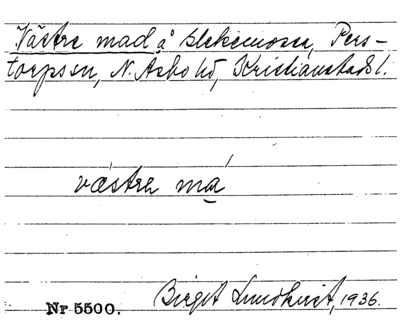 Västra mad å Slekemosse, Pers-
torps sn, N. Åsbo hd, Kristianstads l.
västra ma
Nr 5500. Birgit Lundkvist, 1936.